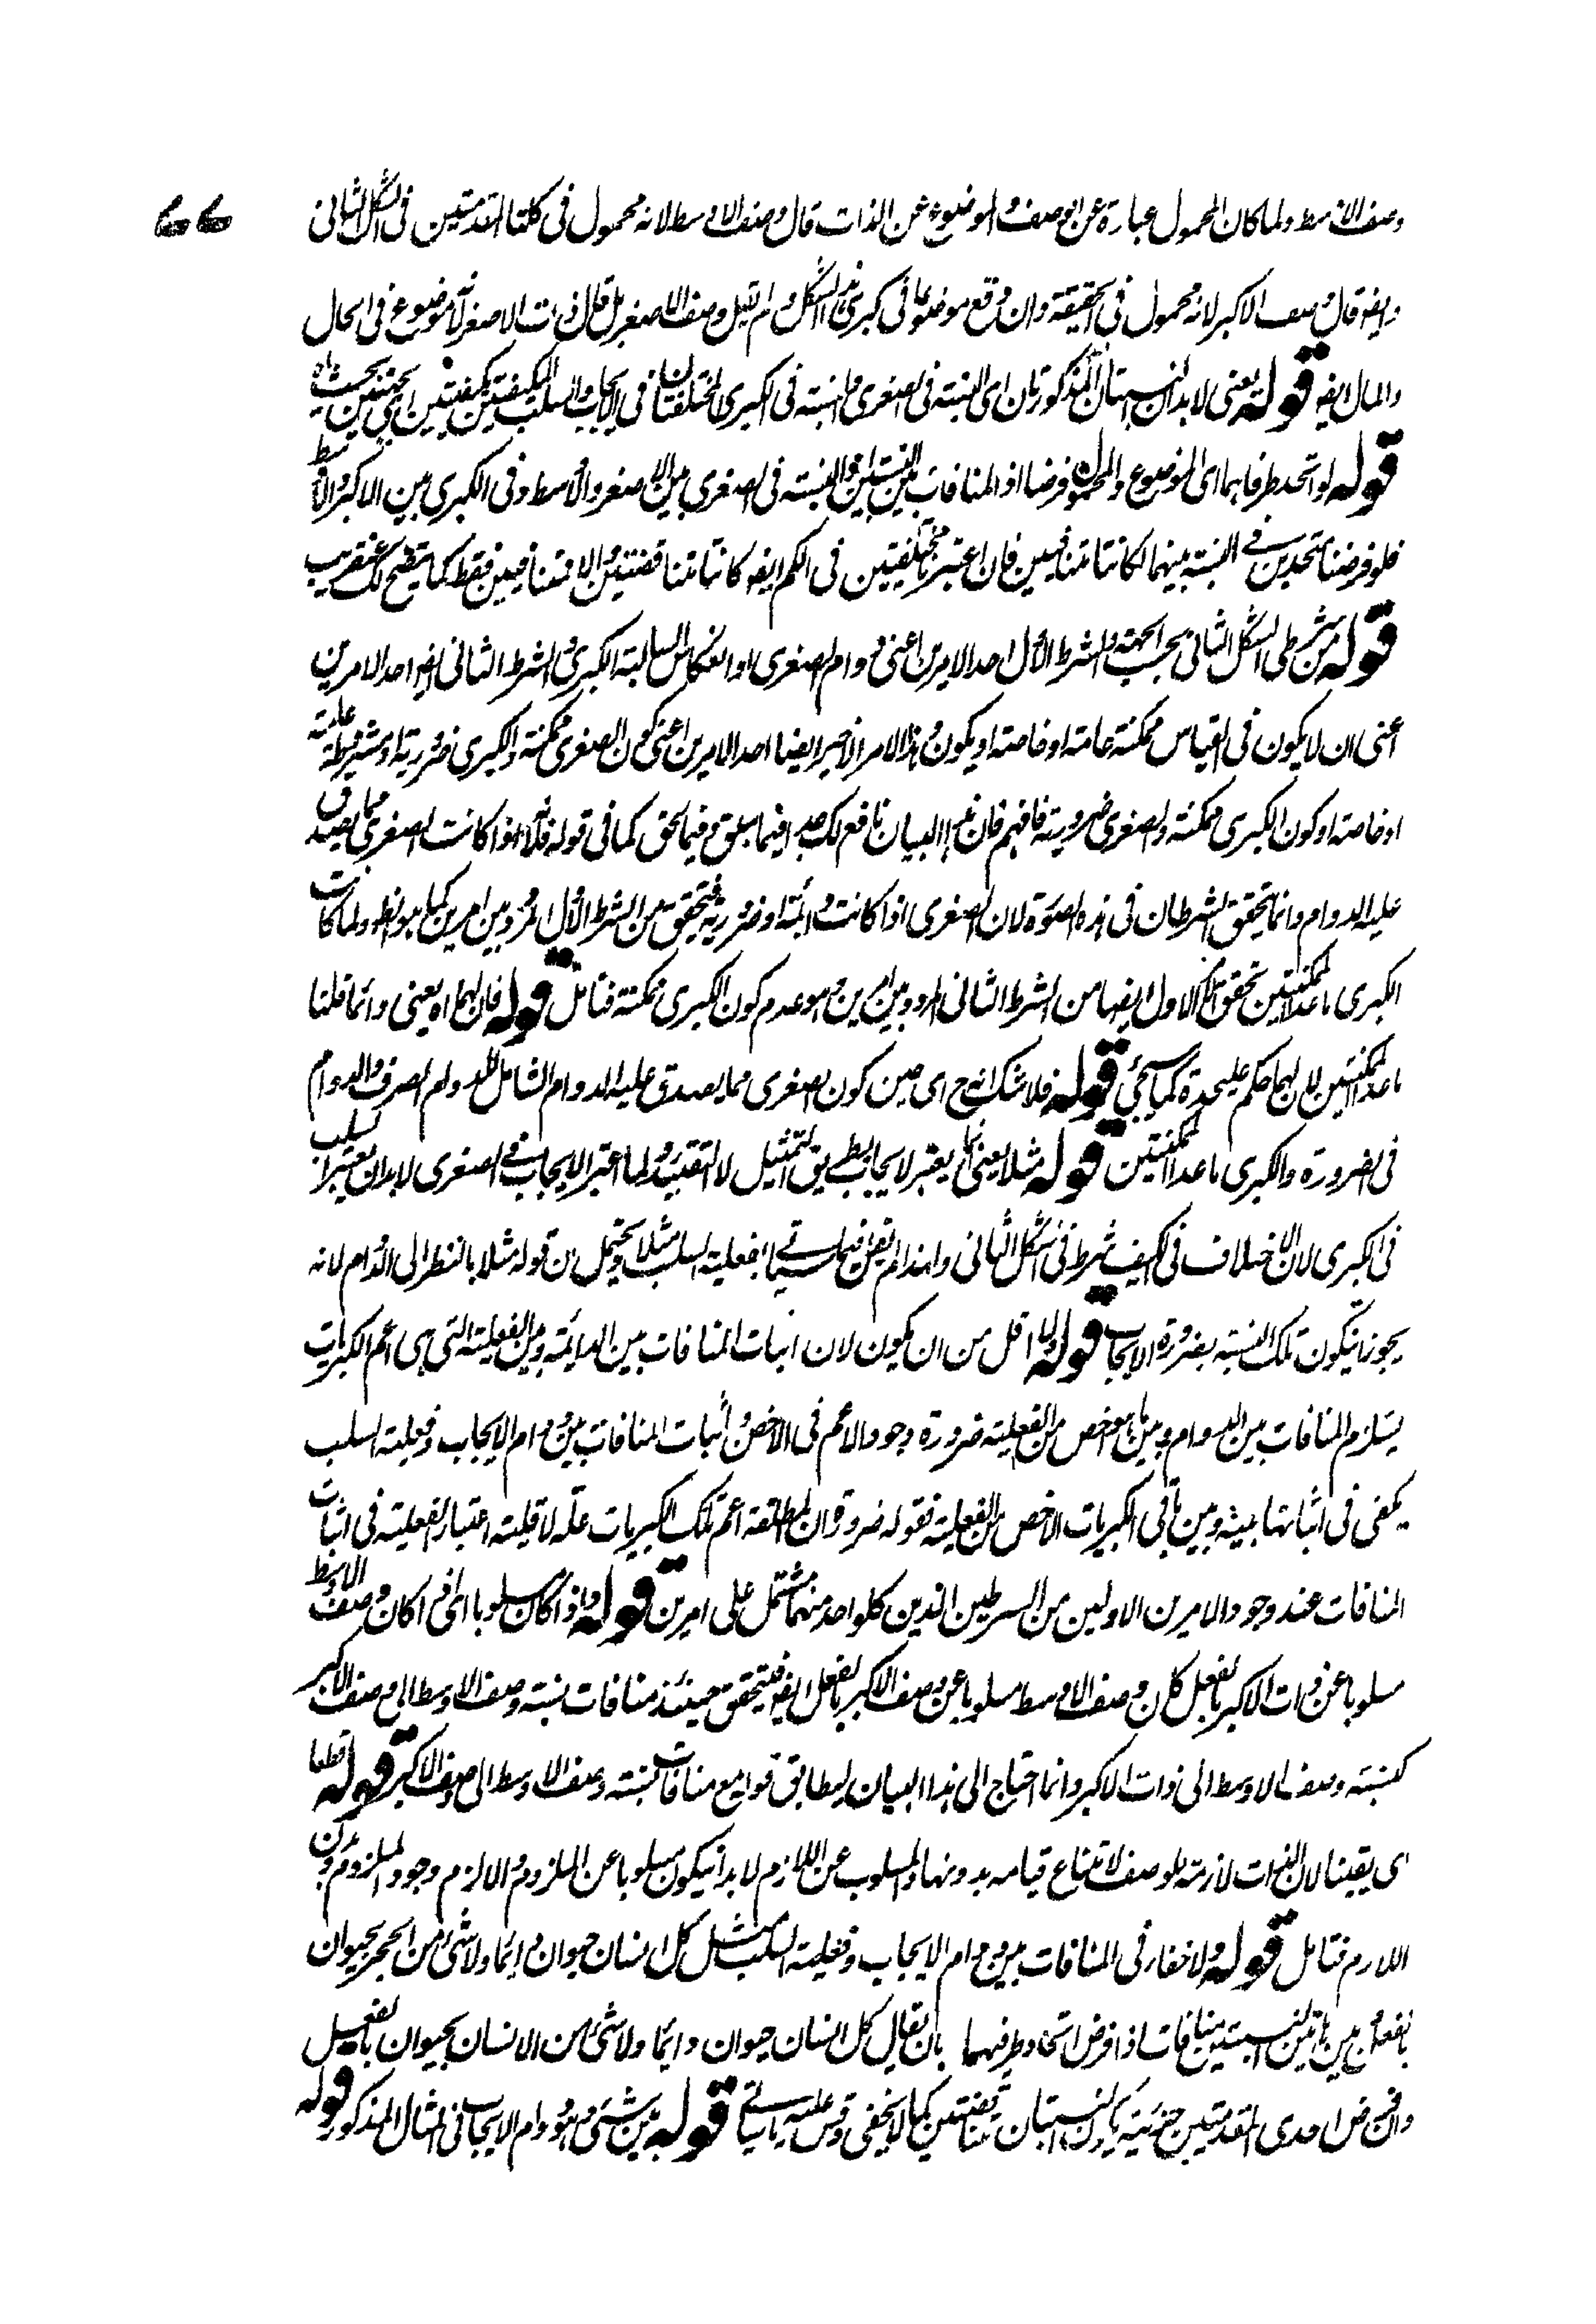 ۷۷
وصف الاوسط ولما كان المحمول عبارة عن الوصف والموضوع عن الذات قال وصف الاوسط لانه محمول فى كلتا المقدمتين فى الشكل الثانى
وايضه قال وصف الاكبر لانه محمول فى الحقيقة وان وقع موضوعا فى كبرى هذا الشكل ولم يقل وصف الاصغر بل قال ذات الاصغر لانه موضوع فى الحال
والمال ايضه قوله يعنى لابد ان النسبتان المذكورتان اى النسبته فى الصغرى والنسبته فى الكبرى المختلفتان فى الايجاب والسلب المكيفتين بكيفيتين اى بجهتين بحيث اه
قوله لو اتحد طرفاهما اى الموضوع والمحمول فرضا اذ المنافات بين النسبتين والنسبته فى الصغرى بين الاصغر والاوسط وفى الكبرى بين الاكبر والاوسط
فلو فرضنا متحدين فى النسبته بينهما لكانتا متنافيين فان اعتبرتا مختلفتين فى الكم ايضه كانتا متناقضتين والا فمتنافيين فقط كما يتضح لك عنقريب
قوله من شرطى الشكل الثانى بحسب الجهة والشرط الاول احد الامرين اعنى دوام الصغرى او انعكاس السالبته الكبرى والشرط الثانى ايضه احد الامرين
اعنى ان لا يكون فى القياس ممكنته عامته او خاصته او يكون وهذا الامر الاخير ايضا احد الامرين اعنى كون الصغرى ممكنة والكبرى ضروريته او مشروطة عامته
او خاصته او كون الكبرى ممكنته والصغرى ضروريته فافهم فان هذا البيان نافع لك جدا فيما سبق وفيما يلحق كما فى قوله فلانه اذا كانت الصغرى مما يصدق
عليه الدوام وانما يتحقق الشرطان فى هذه الصورة لان الصغرى اذا كانت دائمته او ضروريته فيتحقق من الشرط الاول المردد بين امرين كما هو الظ ولما كانت
الكبرى ما عدا الممكنتين تحقق الامر الاول ايضها من الشرط الثانى المردد بين امرين وهو عدم كون الكبرى ممكنته فتامل قوله فان لهما اه يعنى وانما قلنا
ما عدا الممكنتين لان لهما حكم عليحدة كما سيجئ قوله فلا شك انه ح اى حين كون الصغرى مما يصدق عليه الدوام الشامل للدوام الصرف والدوام
فى الضرورة والكبرى ما عدا الممكنتين قوله مثلا يعنى انما يعتبر الايجاب بطريق التمثيل لا التقييد ولما اعتبر الايجاب فى الصغرى لابد ان يعتبر السلب
فى الكبرى لان الاختلاف فى الكيف شرط فى الشكل الثانى ولهذا لم يقل فيما سياتى بفعلية السلب مثلا ويحتمل ان قوله مثلا بالنظر الى الدوام لانه
يجوز ان يكون تلك النسبته بضرورة الايجاب قوله ولا اقل من ان يكون لان اثبات المنافات بين الدائمته وبين الفعليته التى هى اعم الكبريات
يستلزم المنافات بين الدوام وبين ما هو اخص من الفعليته ضرورة وجود الاعم فى الاخص واثبات المنافات بين دوام الايجاب وفعليته السلب
يكفى فى اثباتها بينه وبين باقى الكبريات الاخص من الفعليته فقوله ضرورة ان المطلقة اعم تلك الكبريات علة لاقليته اعتبار الفعليته فى اثبات
المنافات عند وجود الامرين الاولين من الشرطين الذين كلواحد منهما مشتمل على امرين قوله واذا كان مسلوبا اى اذا كان وصف الاوسط
مسلوبا عن ذات الاكبر بالفعل كان وصف الاوسط مسلوبا عن وصف الاكبر بالفعل ايضه فيتحقق حينئذ منافات نسبته وصف الاوسط الى وصف الاكبر
كنسبته وصف الاوسط الى ذات الاكبر وانما احتاج الى هذا البيان ليطابق قوله مع منافات نسبته وصف الاوسط الى وصف الاكبر قوله قطعا
اى يقينا لان الذات لازمته للوصف لامتناع قيامه بدونها والمسلوب عن اللازم لابد ان يكون مسلوبا عن الملزوم والا لزم وجود الملزوم بدون
اللازم فتامل قوله ولا خفاء فى المنافات بين دوام الايجاب وفعليته السلب مثل كل انسان حيوان دائما ولا شئ من الحجر بحيوان
بالفعل بين هاتين النسبتين منافات اذا فرض اتحاد طرفيهما بان يقال كل انسان حيوان دائما ولا شئ من الانسان بحيوان بالفعل
وان فرض احدى المقدمتين جزئيته يكون النسبتان متناقضتين كما لا يخفى وقس عليه ما ياتى قوله بين شئ وهو دوام الايجاب فى المثال المذكور قوله